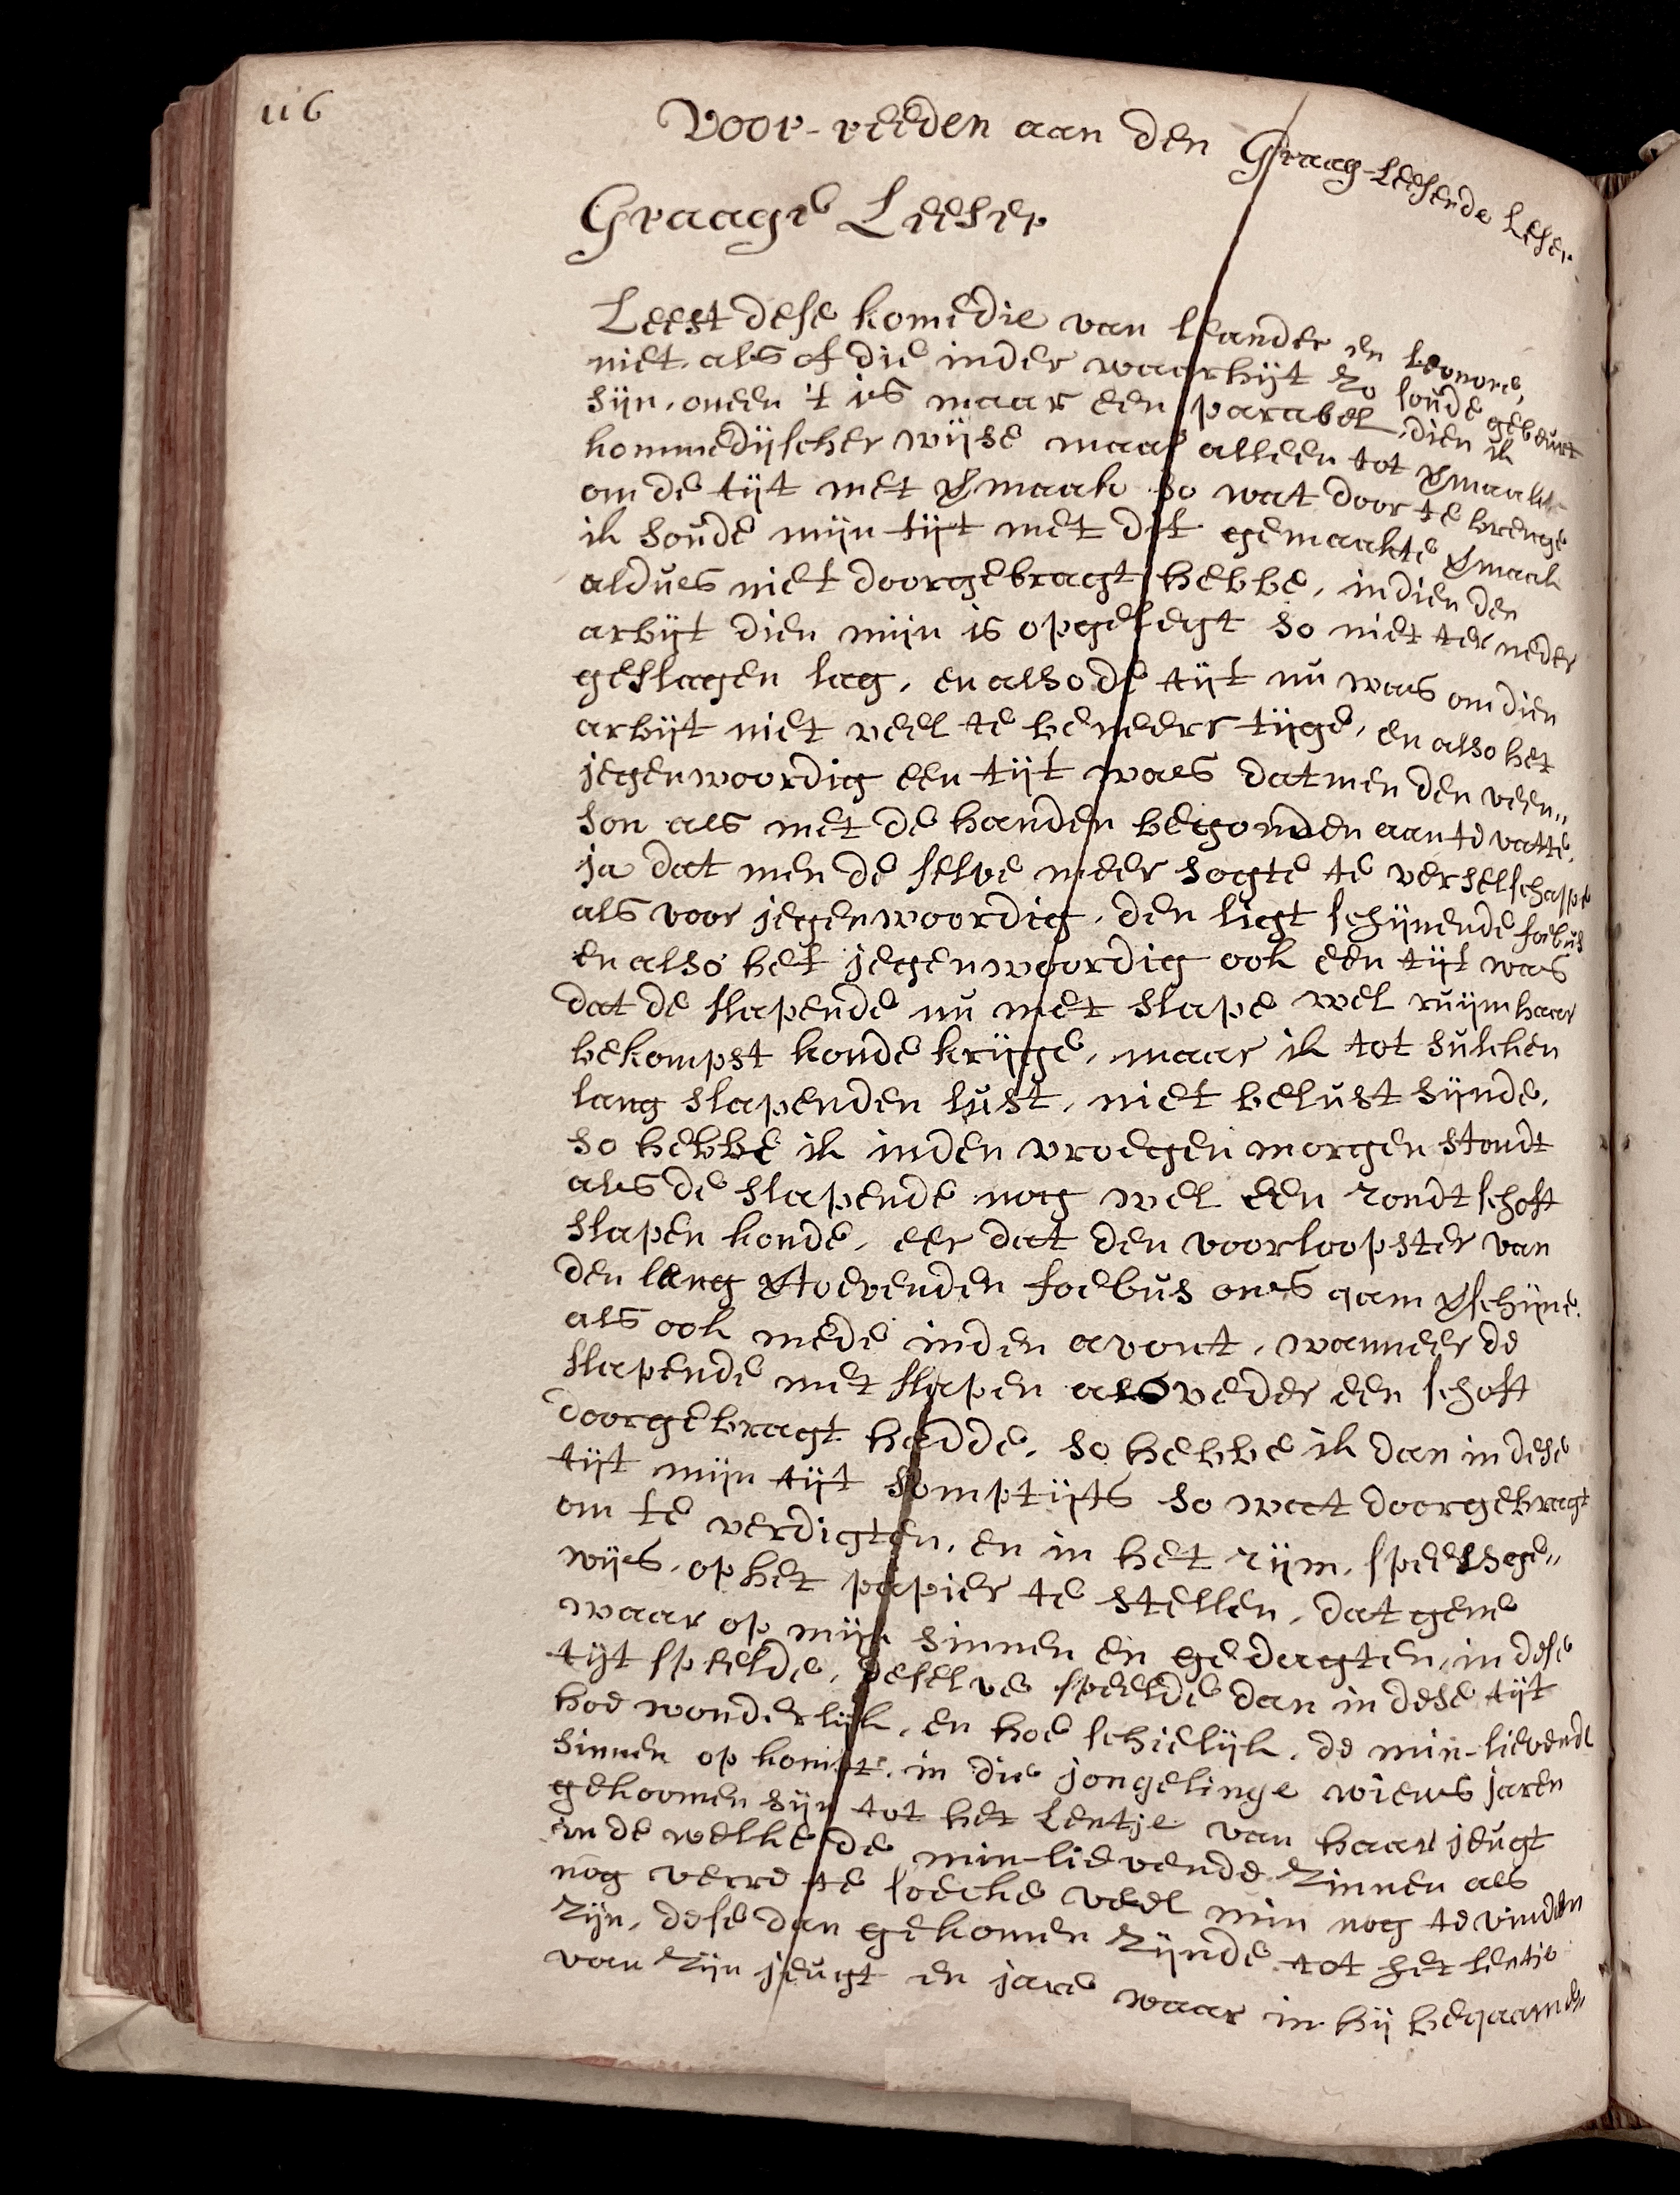 116
Voor-reeden aan den Graag-Leesende Leser.
Graage Leeser
Leest dese komedie van leander en leonore,
niet als of die inder waarhijt zo soude gebeurt
sijn, oneen 't is maar een parabel, dien ik
kommedijscher wijse maar alleen tot vmaakt
om de tijt met vmaak so wat door te brenge
ik soude mijn tijt met dit gemaakte vmaak
aldues niet doorgebragt hebbe, indien den
arbijt dien mijn is opgelegt so niet ter neder
geslagen lag, en also de tijt nu was om dien
arbijt niet veel te beneerstijge, en also het
jegenwoordig een tijt waes datmen den veen„
son als met de handen begonden aan te vatte,
ja dat men de selve meer sogte te verselschappe
als voor jegenwoordig, den ligt schijnende foebus
en also het jegenwoordig ook een tijt was
dat de slapende nu met slape wel ruijm haar
bekompst konde krijge, maar ik tot sulken
lang slapenden lust, niet belust sijnde,
so hebbe ik inden vroegen morgen stondt
als de slapende nog wel een rondt schoft
slapen konde, eer dat den voorloopster van
den lang vtoevenden foebus ons qam vschijne.
als ook mede inden avont, wanneer de
slapende met slapen aloveder een schoft
doorgebragt hadde, so hebbe ik dan in dese
tijt mijn tijt somptijts so wat doorgebragt
om te verdigten, en in het rijm, speelsge„
wijs, op het papier te stellen, dat gene
waar op mijn sinnen en gedagten, in dese
tijt speelde, deselve speelde dan in dese tijt
hoe wonderlijk, en hoe schielijk, de min-lievende
sinnen op komt, in die jongelinge wiens jaren
gekoomen sijn tot het Lentje van haar jeugt
in de welke de min-lievende Zinnen als
nog verre te soecke veel min nog te vinden
Zijn, dese dan gekomen Zijnde tot het lentje
van Zijn jeugt en jare waar in hij beqaamde„